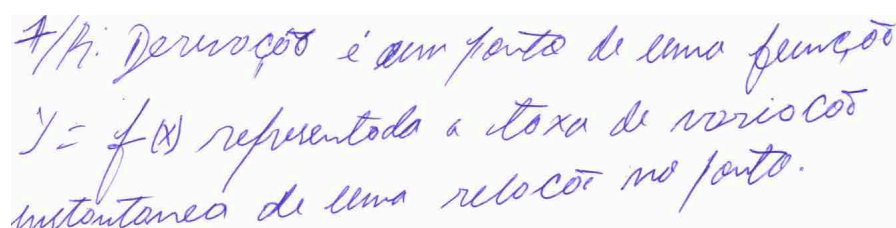 7/R: Derivação é um ponto de uma função
Y = f(x) representada a taxa de variacão
instantanea de uma relacão no ponto.